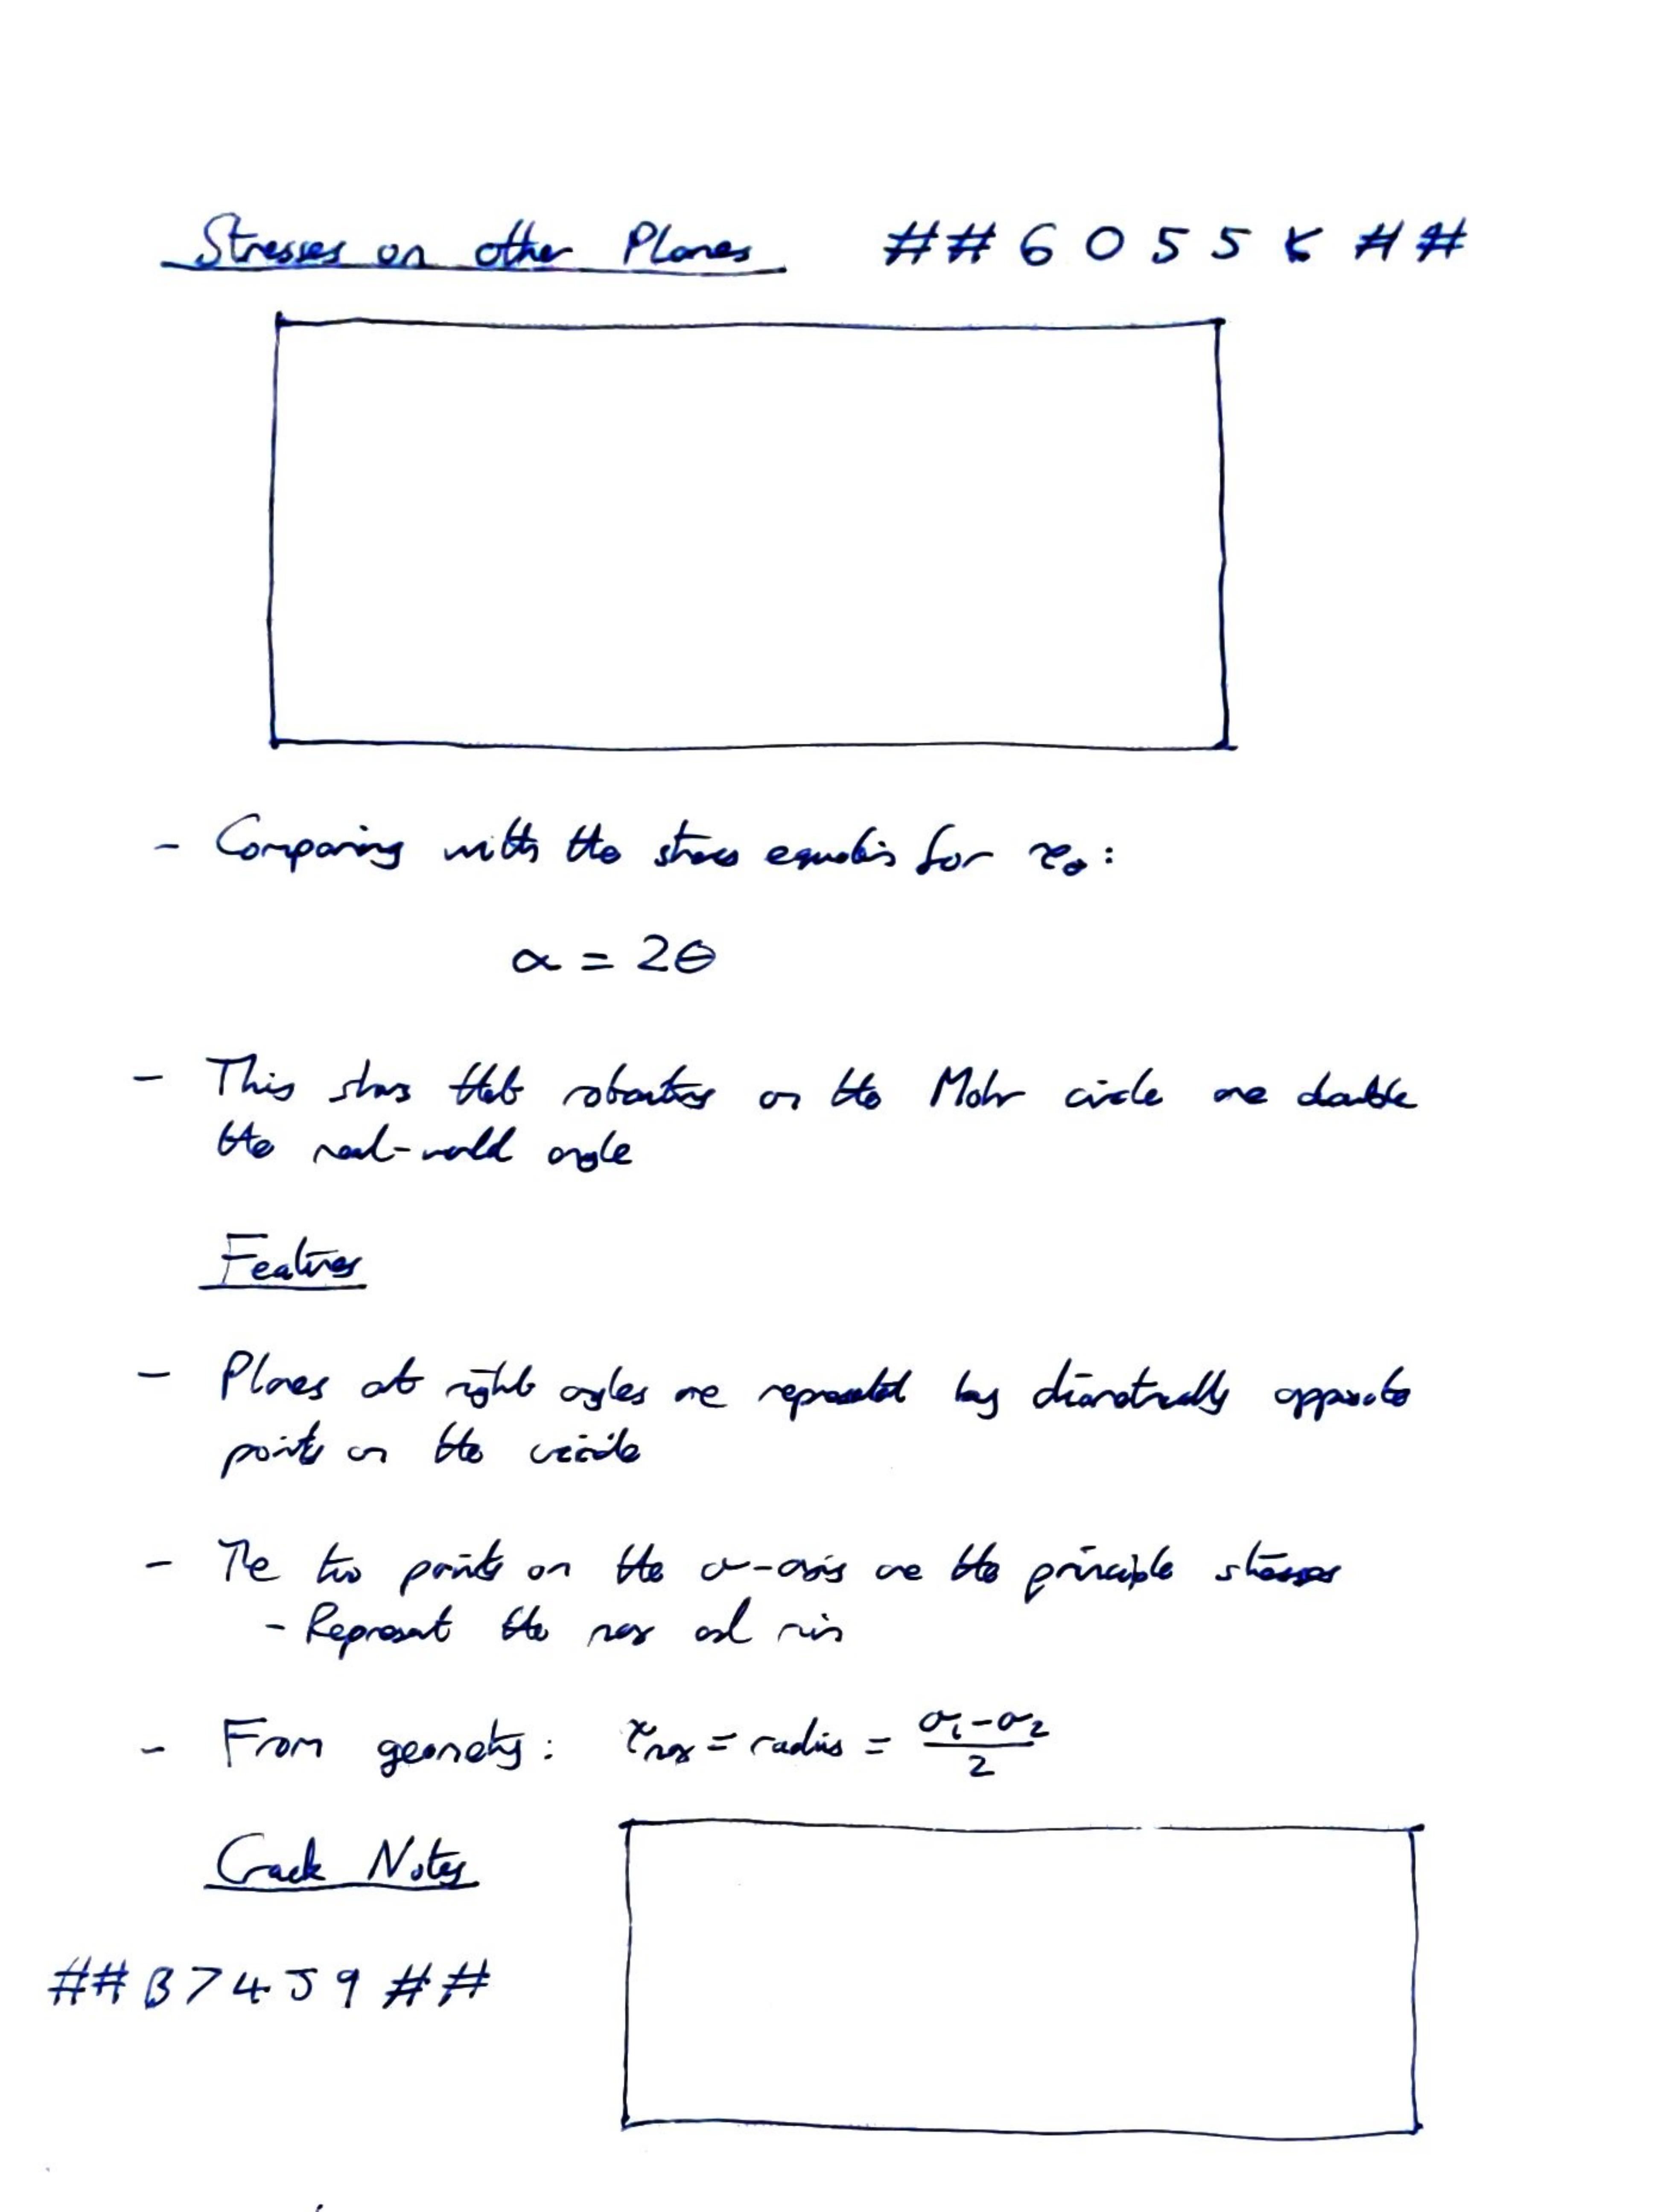 Stresses on other Planes ##6055K##
- Comparing with the stress equations for τθ:
α = 2θ
- This shows that rotations on the Mohr circle are double
the real-world angle
Features
- Planes at right angles are represented by diametrically opposite
points on the circle
- The two points on the σ-axis are the principle stresses
- Represent the max and min
- From geometry: τmax = radius = (σ1-σ2)/2
Crack Notes
##B7459##